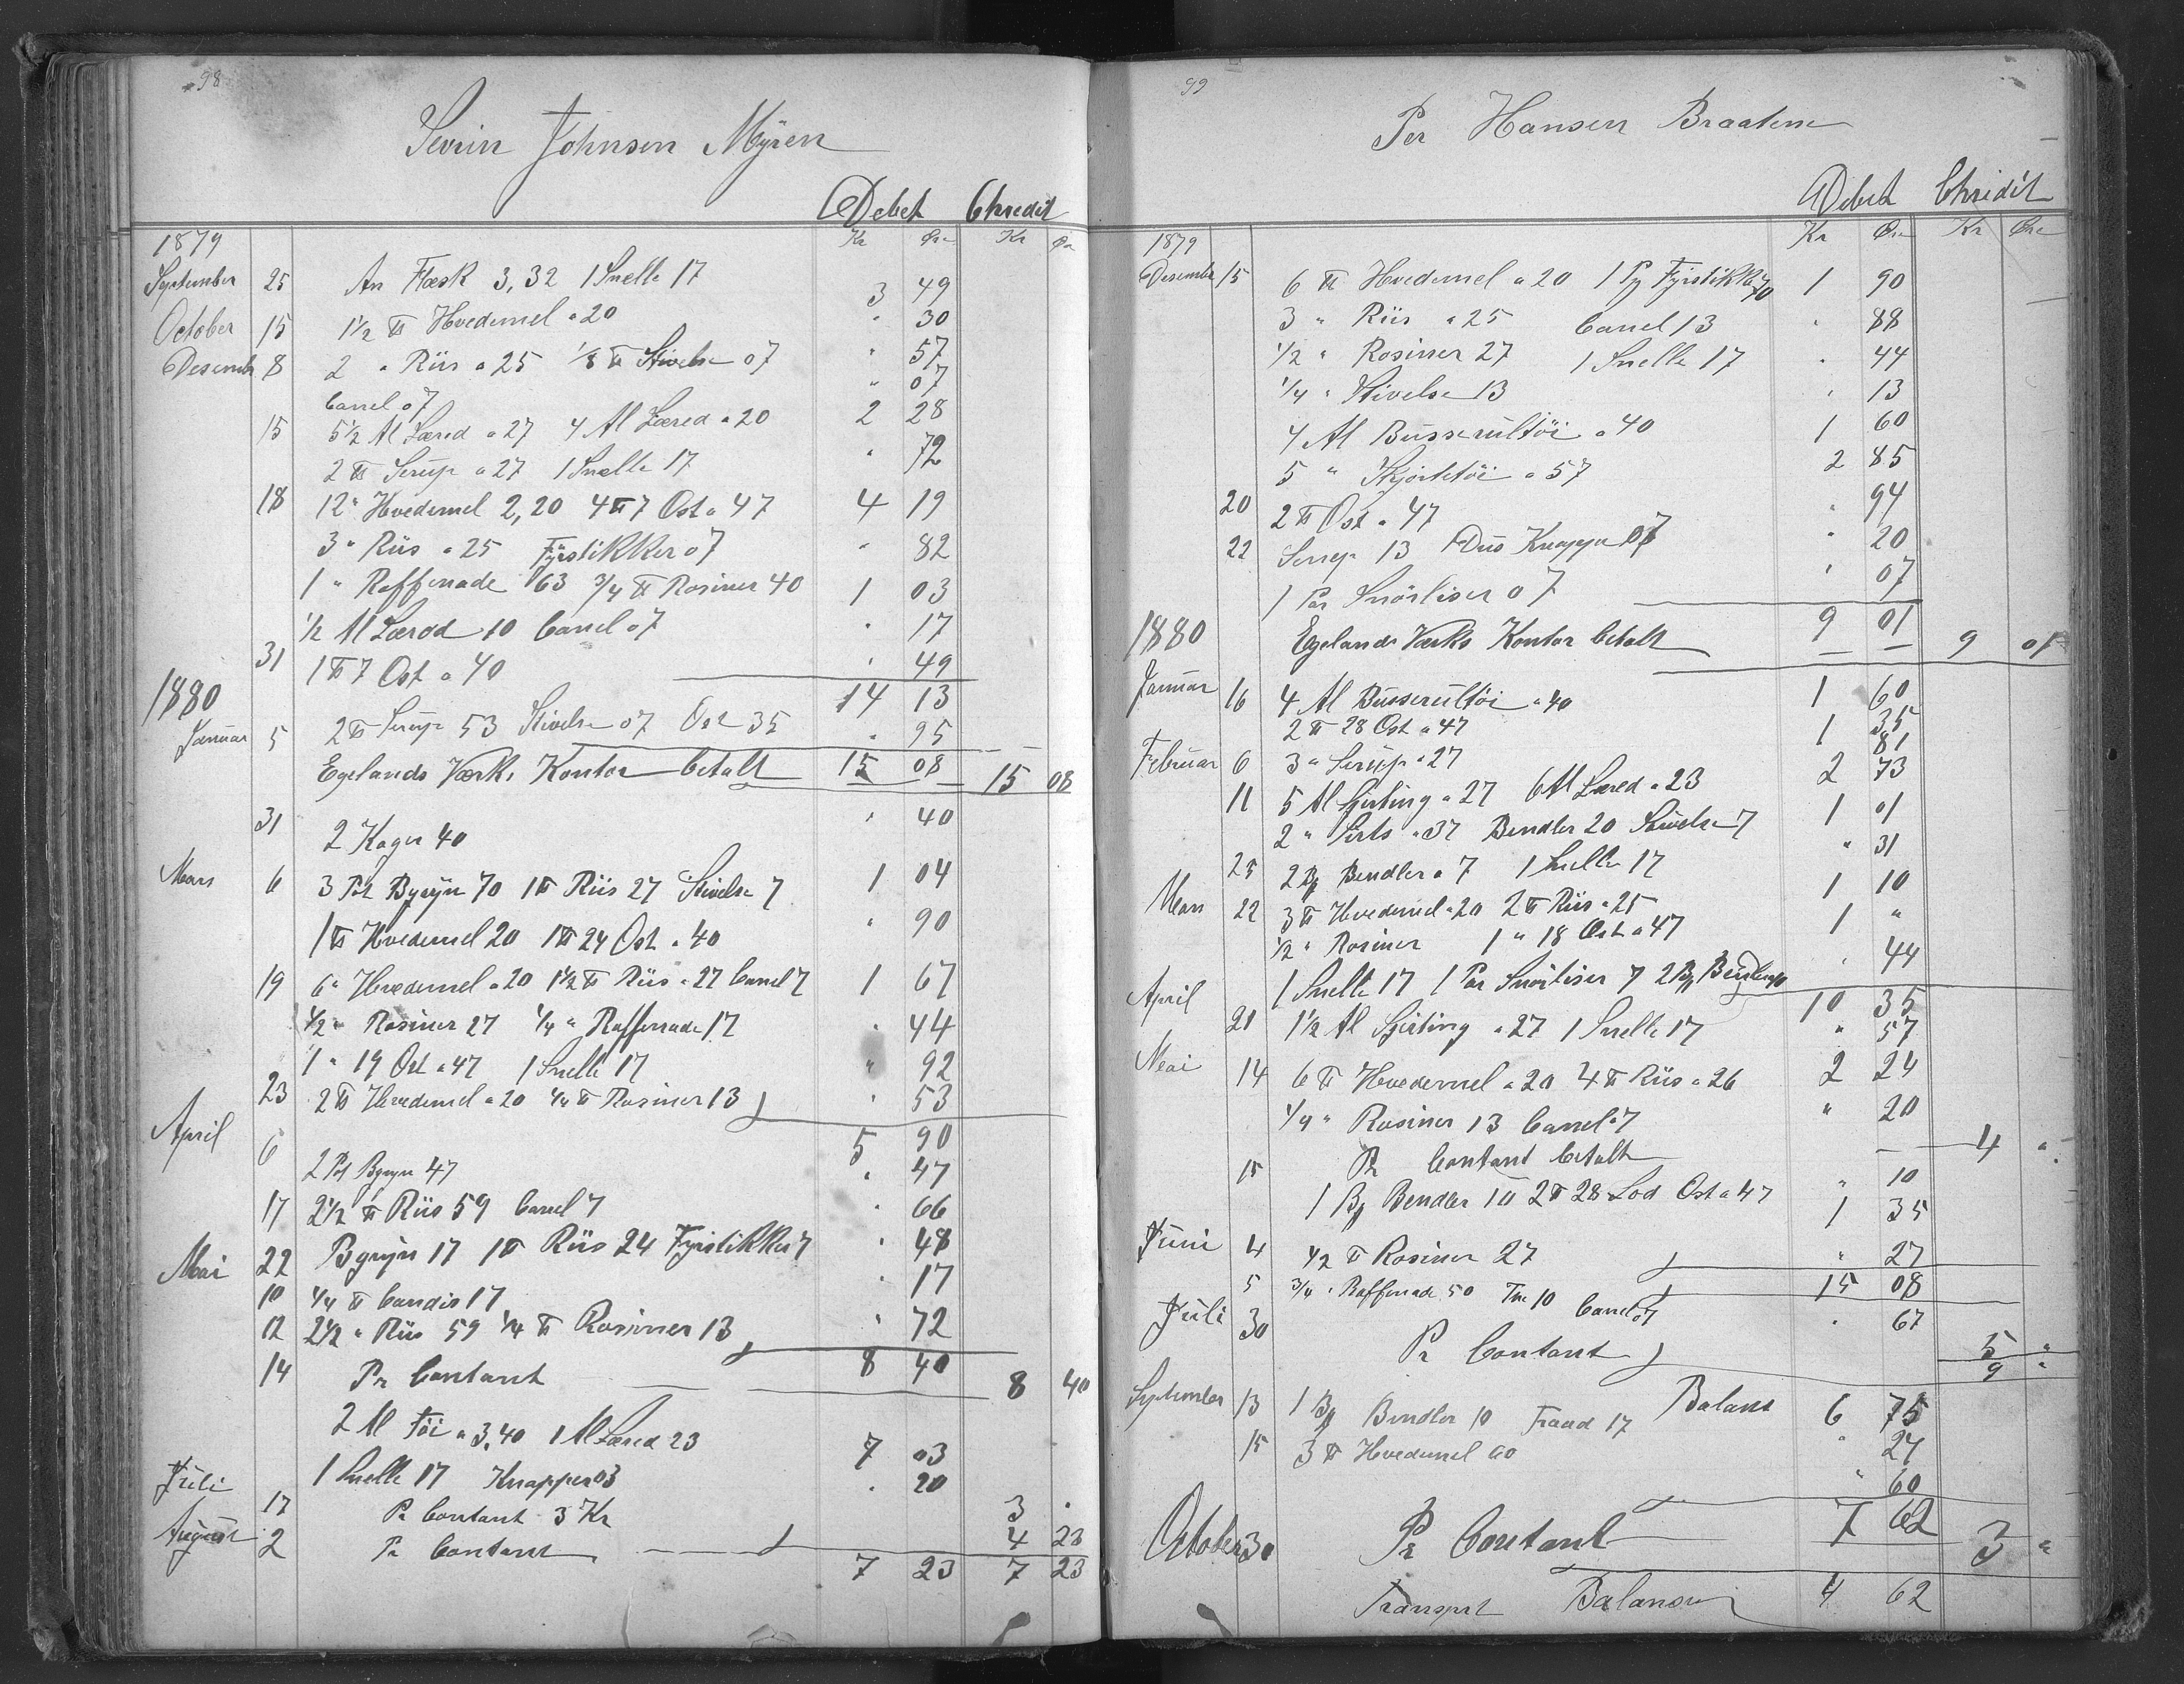 98
Sevrin Johnsen Myren
Debet Chredit
1879 Kr Øre Kr Øre
September 25 An Flæsk 3,32 1 Snelle 17 3 49
October 15 1 1/2 ℔ Hvedemel a 20 " 30
Desembr 8 2 " Riis a 25 1/8 ℔ Stivelse 07 " 57
Canel 07 " 07
15 5 1/2 Al Lærred a 27 4 Al Lærred a 20 2 28
2 ℔ Serup a 27 1 Snelle 17 " 72
18 12 " Hvedemel 2,20 4 ℔ 7 Ost a 47 4 19
3 " Riis a 25 Fyrstikker 07 " 82
1 " Raffenade 63 3/4 ℔ Rosiner 40 1 03
1/2 Al Lærad 10 Canel 07 " 17
31 1 ℔ 7 Ost a 40 " 49
1880 14 13
Januar 5 2 ℔ Serup 53 Stivelse 07 Ost 35 " 95
Egelands Værks Kontor betalt 15 08 15 08
31 2 Kager 40 " 40
Mars 6 3 Pot Bygryn 70 1 ℔ Riis 27 Stivelse 7 1 04
1 ℔ Hvedemel 20 1 ℔ 24 Ost a 40 " 90
19 6 " Hvedemel a 20 1 1/2 ℔ Riis a 27 Canel 7 1 67
1/2 " Rosiner 27 1/4 " Raffenade 17 " 44
1 " 19 Ost a 47 1 Snelle 17 " 92
23 2 ℔ Hvedemel a 20 1/4 ℔ Rosiner 13 " 53
April 5 90
6 2 Pot Bgryn 47 " 47
17 2 1/2 ℔ Riis 59 Canel 7 " 66
22 Bgryn 17 1 ℔ Riis 24 Fyrstikker 7 " 48
Mai 10 1/4 ℔ Candis 17 " 17
12 2 1/2 " Riis 59 1/4 ℔ Rosiner 13 " 72
8 40
14 Pr Contant 8 40
2 Al Töi a 3,40 1 Al Lærred 23 7 03
1 Snelle 17 Knapper 03 " 20
Juli 17 Pr Contant 3 Kr 3 "
August 2 Pr Contant 4 23
7 23 7 23
99
Per Hansen Braatene
Debet Chridit
1879 Kr Øre Kr Øre
Desember 15 6 ℔ Hvedemel a 20 1 Pg Fyrstikker 70 1 90
3 " Riis a 25 Canel 13 " 88
1/2 " Rosiner 27 1 Snelle 17 " 44
1/4 " Stivelse 13 " 13
4 Al Busserultöi a 40 1 60
5 " Skjortetöi a 57 2 85
20 2 ℔ Ost a 47 " 94
22 Serup 13 Dus Knapper 07 " 20
1 Par Snörliser 07 " 07
9 01
1880 Egelands Værks Kontor betalt 9 01
Januar 16 4 Al Busserultöi a 40 1 60
2 ℔ 28 Ost a 47 1 35
Februar 6 3 " Serup a 27 81
11 5 Al Sjirting a 27 6 Al Lærred a 23 2 73
2 " Sirts a 37 Bendler 20 Stivelse 7 1 01
25 2 Bg Bendler a 7 1 Snelle 17 " 31
Mars 22 3 ℔ Hvedemel a 20 2 ℔ Riis a 25 1 10
1/2 " Rosiner 1 " 18 Ost a 47 1 "
1 Snelle 17 1 Par Snörliser 7 2 Bg Bendler " 44
April 10 35
21 1 1/2 Al Sjirting a 27 1 Snelle 17 " 57
Mai 14 6 ℔ Hvedemel a 20 4 ℔ Riis a 26 2 24
1/4 " Rosiner 13 Canel 7 " 20
15 Pr Contant betalt 4 "
1 Bg Bendler 10 " 10
2 ℔ 28 Lod Ost a 47 1 35
Juni 4 1/2 ℔ Rosiner 27 " 27
15 08
5 3/4 " Raffenade 50 10 Canel 07 " 67
Juli 30 Pr Contant 5 "
9 "
Balans 6 75
September 13 1 Bg Bendler 10 Traad 17 " 27
15 3 ℔ Hvedemel 60 " 60
7 62
October 30 Pr Contant 3 "
Transport Balansen 4 62